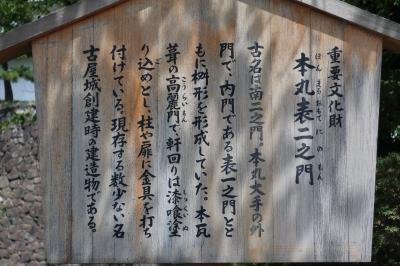 重要文化財
本丸表二之門
ほんまるおもてにのもん
古名は南二之門。本丸大手の外
門で、内門である表一之門とと
もに桝形を形成していた。本瓦
葺の高麗門で、軒回りは漆喰塗
こうらいもん
しっくいぬ
り込めとし、柱や扉に金具を打ち
付けている。現存する数少ない名
古屋城創建時の建造物である。